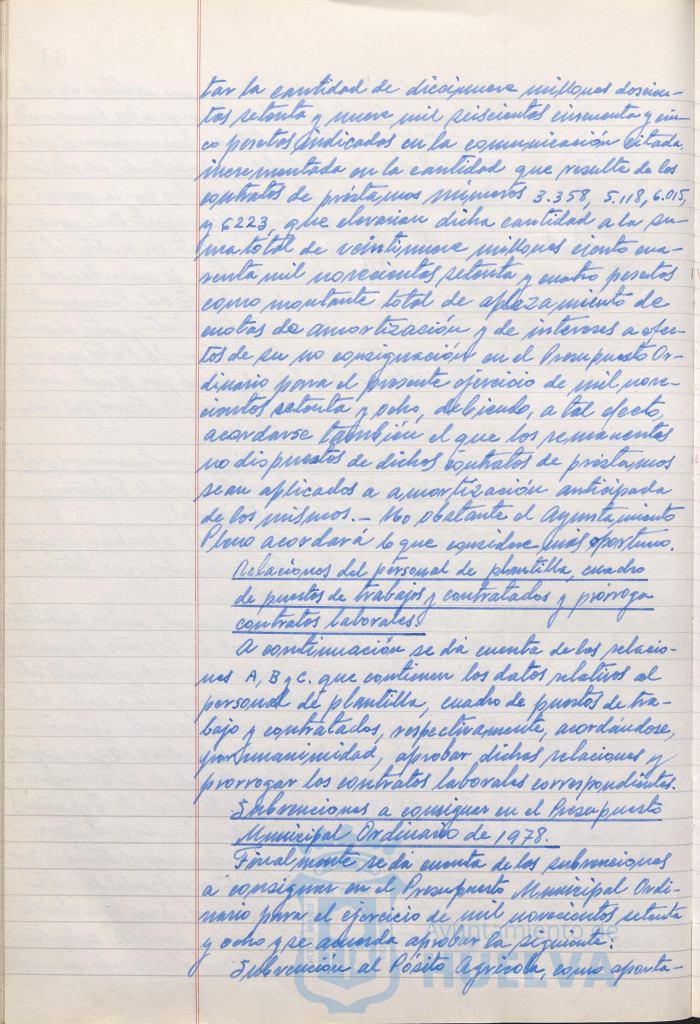 tar la cantidad de diecinueve millones doscien-
tas setenta y nueve mil seiscientas cincuenta y cin-
co pesetas indicadas en la comunicación citada,
incrementada en la cantidad que resulte de los
contratos de préstamos números 3.358, 5.118, 6.015,
y 6223, que elevarían dicha cantidad a la su-
ma total de veintinueve millones ciento cua-
renta mil novecientas setenta y cuatro pesetas
como montante total de aplazamiento de
cuotas de amortización y de intereses a efec-
tos de su no consignación en el Presupuesto Or-
dinario para el presente ejercicio de mil nove-
cientos setenta y ocho, debiendo, a tal efecto,
acordarse también el que los remanentes
no dispuestos de dichos contratos de préstamos
sean aplicados a amortización anticipada
de los mismos.- No obstante el Ayuntamiento
Pleno acordará lo que considere más oportuno.
Relaciones del personal de plantilla, cuadro
de puestos de trabajos y contratados y prórroga
contratos laborales.
A continuación se da cuenta de las relacio-
nes A, B y C. que contienen los datos relativos al
personal de plantilla, cuadro de puestos de tra-
bajo y contratados, respectivamente, acordándose,
por unanimidad, aprobar dichas relaciones y
prorrogar los contratos laborales correspondientes.
Subvenciones a consignar en el Presupuesto
Municipal Ordinario de 1978.
Finalmente se da cuenta de las subvenciones
a consignar en el Presupuesto Municipal Ordi-
nario para el ejercicio de mil novecientos setenta
y ocho y se acuerda aprobar la siguiente:
Subvención al Pósito Agrícola, como aporta-
Ayuntamiento de
HUELVA